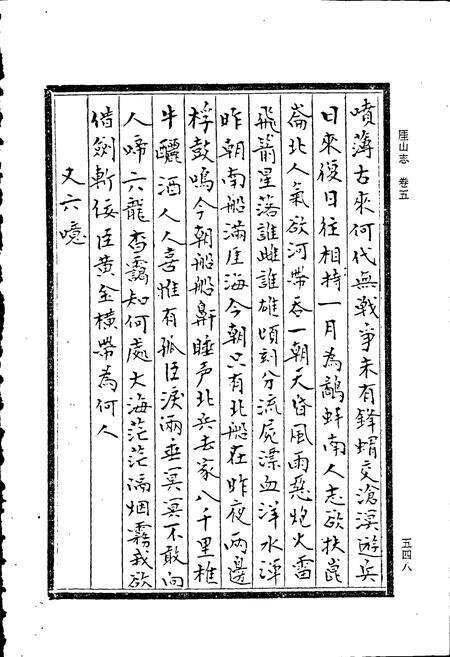 厓山志 卷五
噴薄古來何代無戰爭未有鋒蝟交滄溟遊兵
日來復日往相持一月為鷸蚌南人志欲扶崑
崙北人氣欲河帶吞一朝天昏風雨惡炮火雷
飛箭星落誰雌誰雄頃刻分流屍漂血洋水渾
昨朝南船滿厓海今朝只有北船在昨夜兩邊
桴鼓鳴今朝船船鼾睡声北兵去家八千里椎
牛釃酒人人喜惟有孤臣淚兩垂冥冥不敢向
人啼六龍杳靄知何處大海茫茫隔烟霧我欲
借劍斬佞臣黃金橫帶為何人
又六噫
五四八